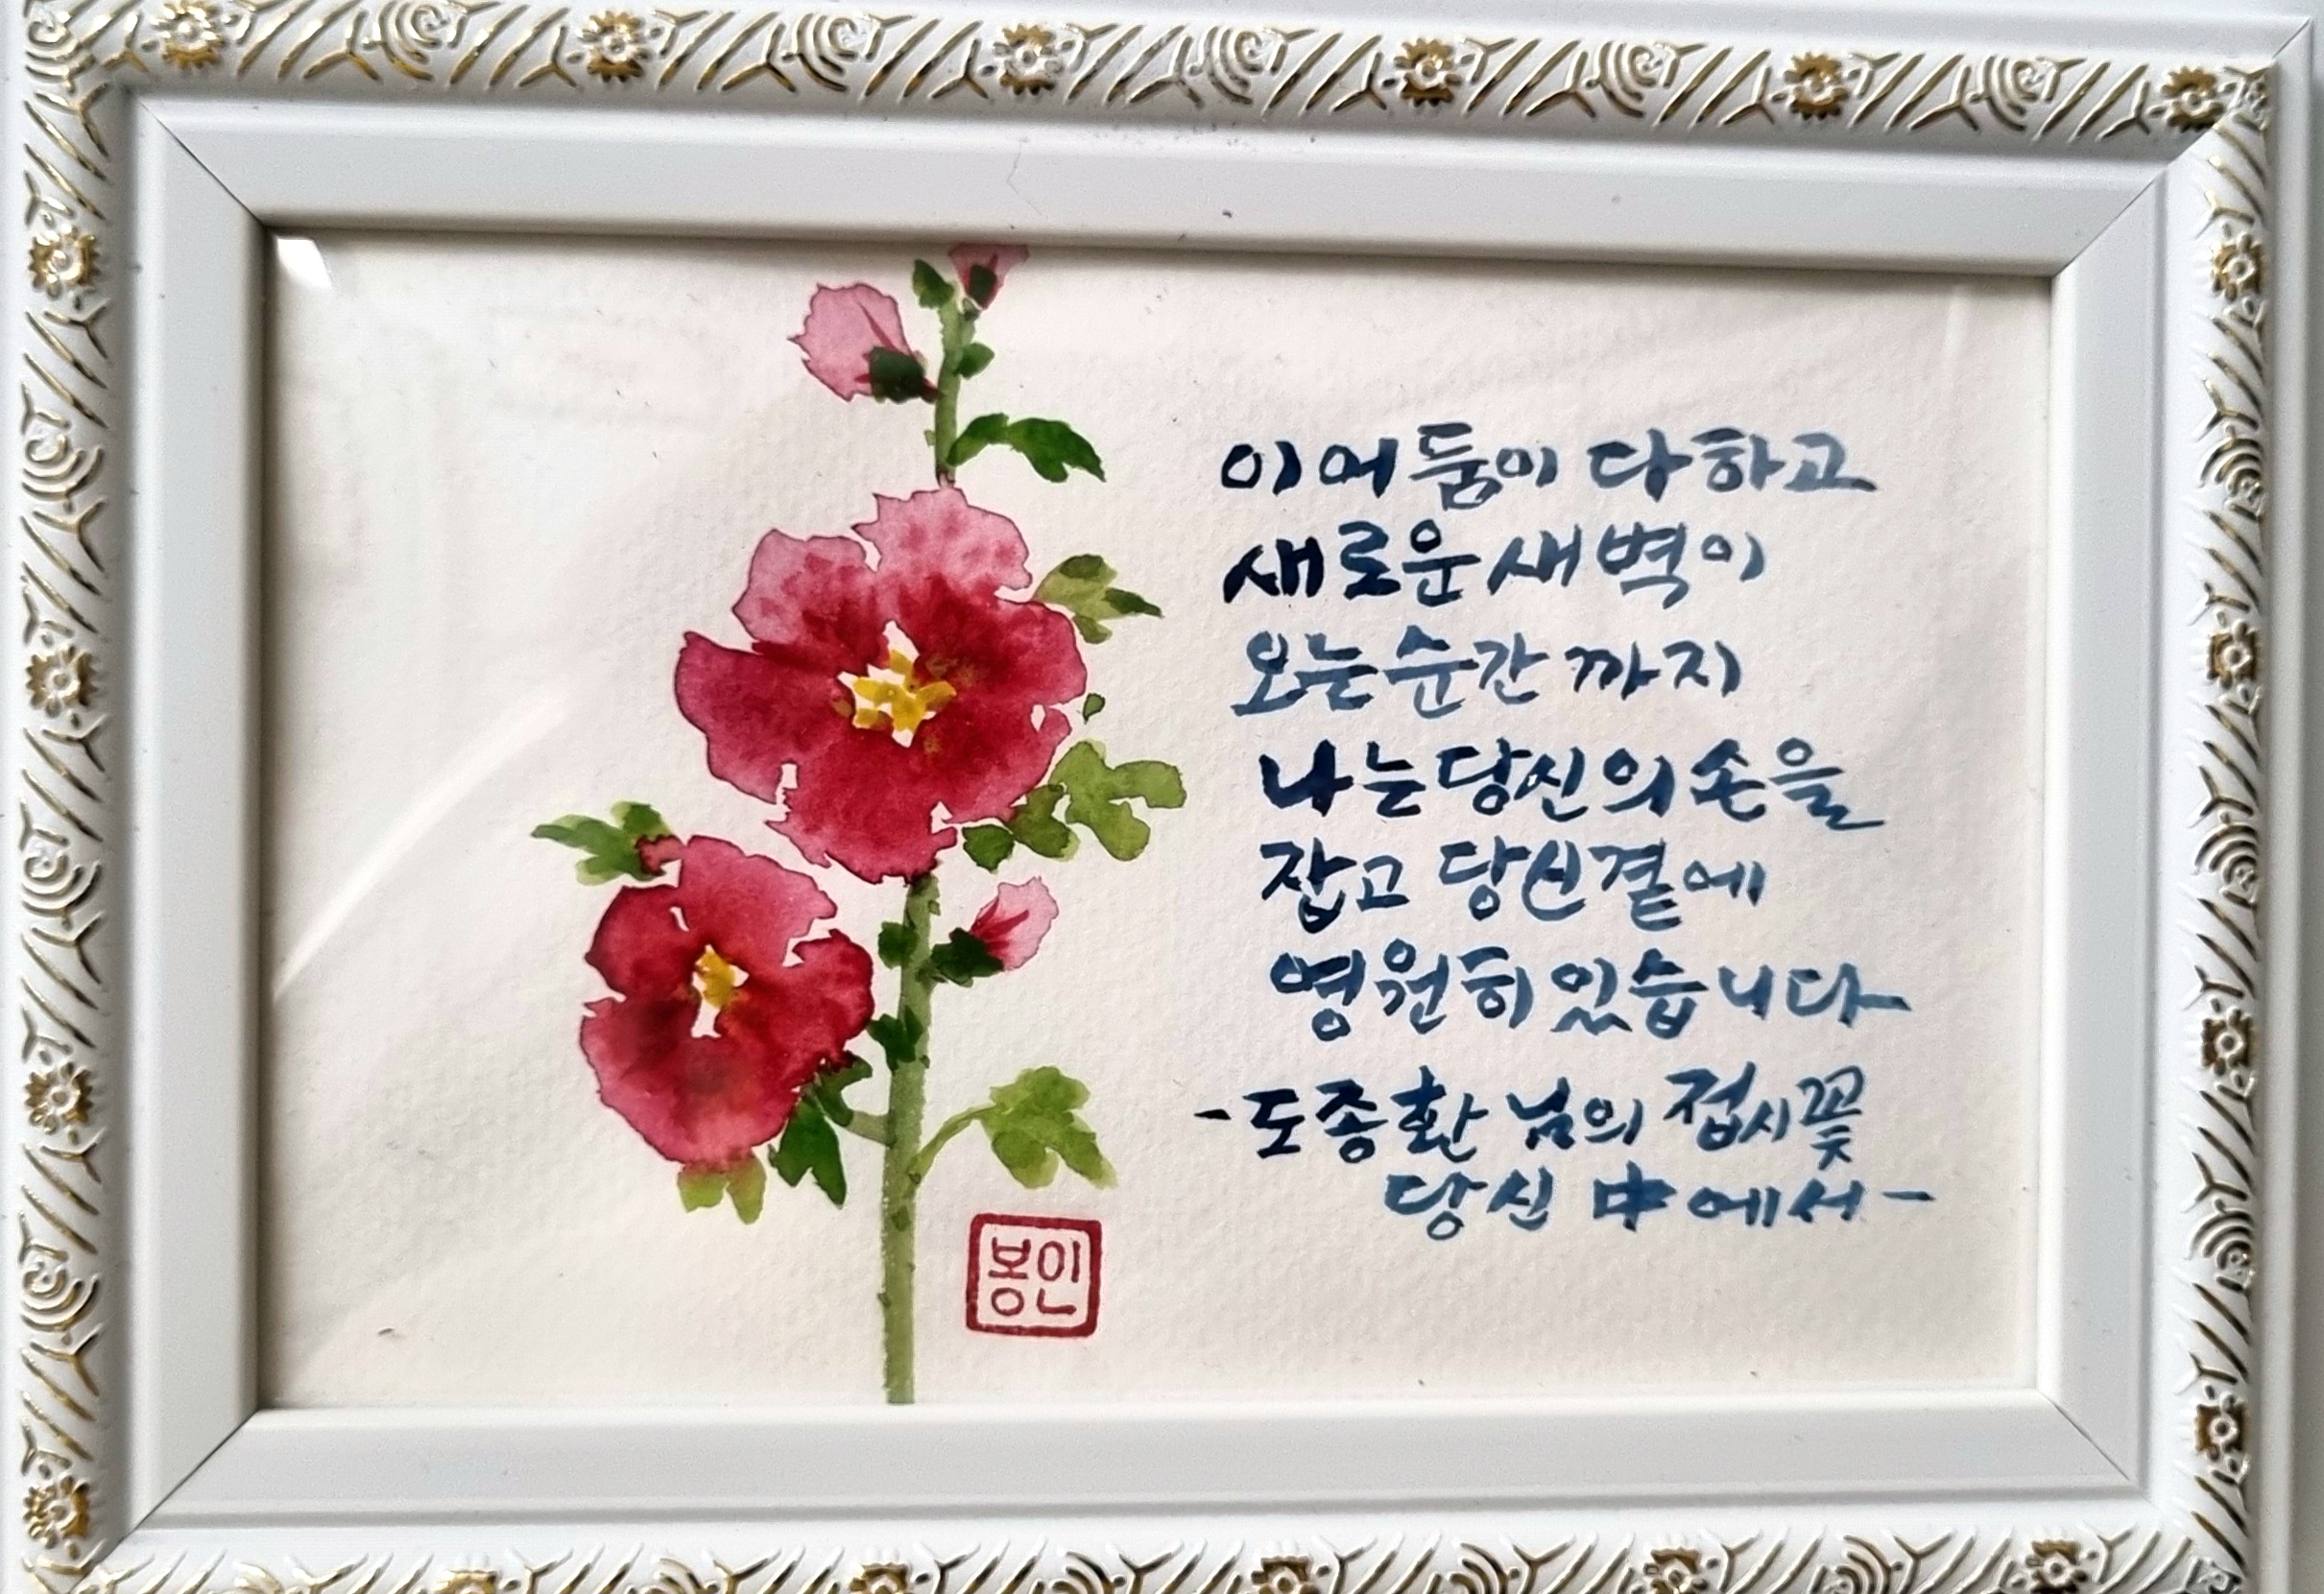 이 어둠이 다하고
새로운 새벽이
오는 순간까지
나는 당신의 손을
잡고 당신 곁에
영원히 있습니다
- 도종환 님의 접시꽃
당신 中에서 -
봉인